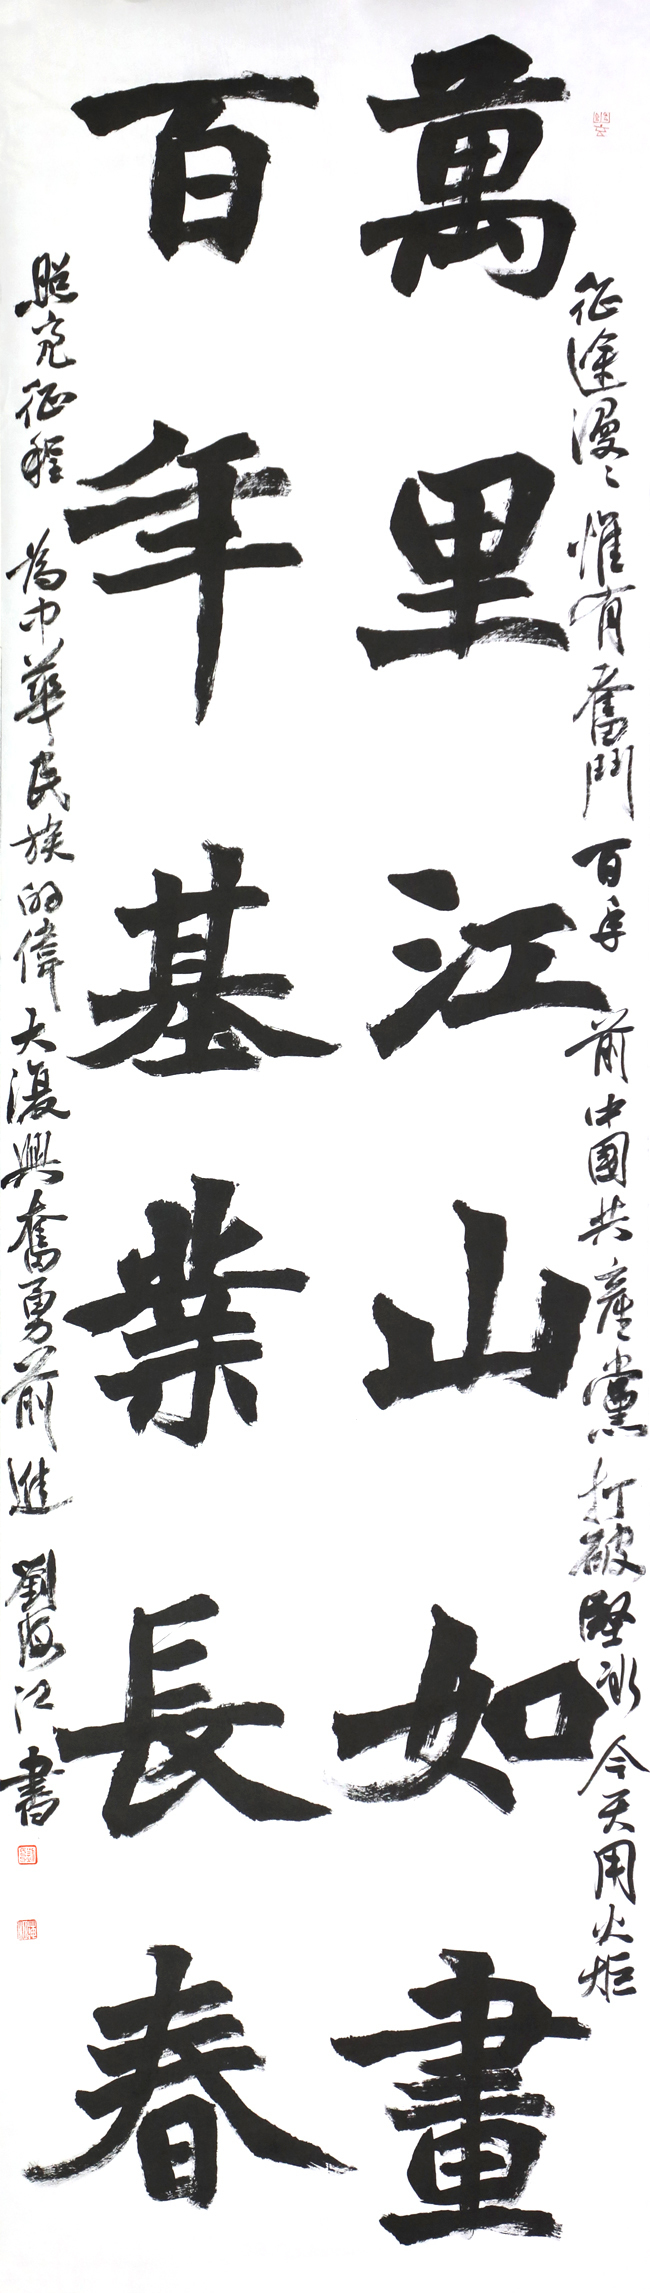 萬里江山如畫
百年基業長春
征途漫々惟有奮鬥百年前中國共產黨打破堅冰今天用火炬
照亮征程為中華民族的偉大復興奮勇前進 劉海江書